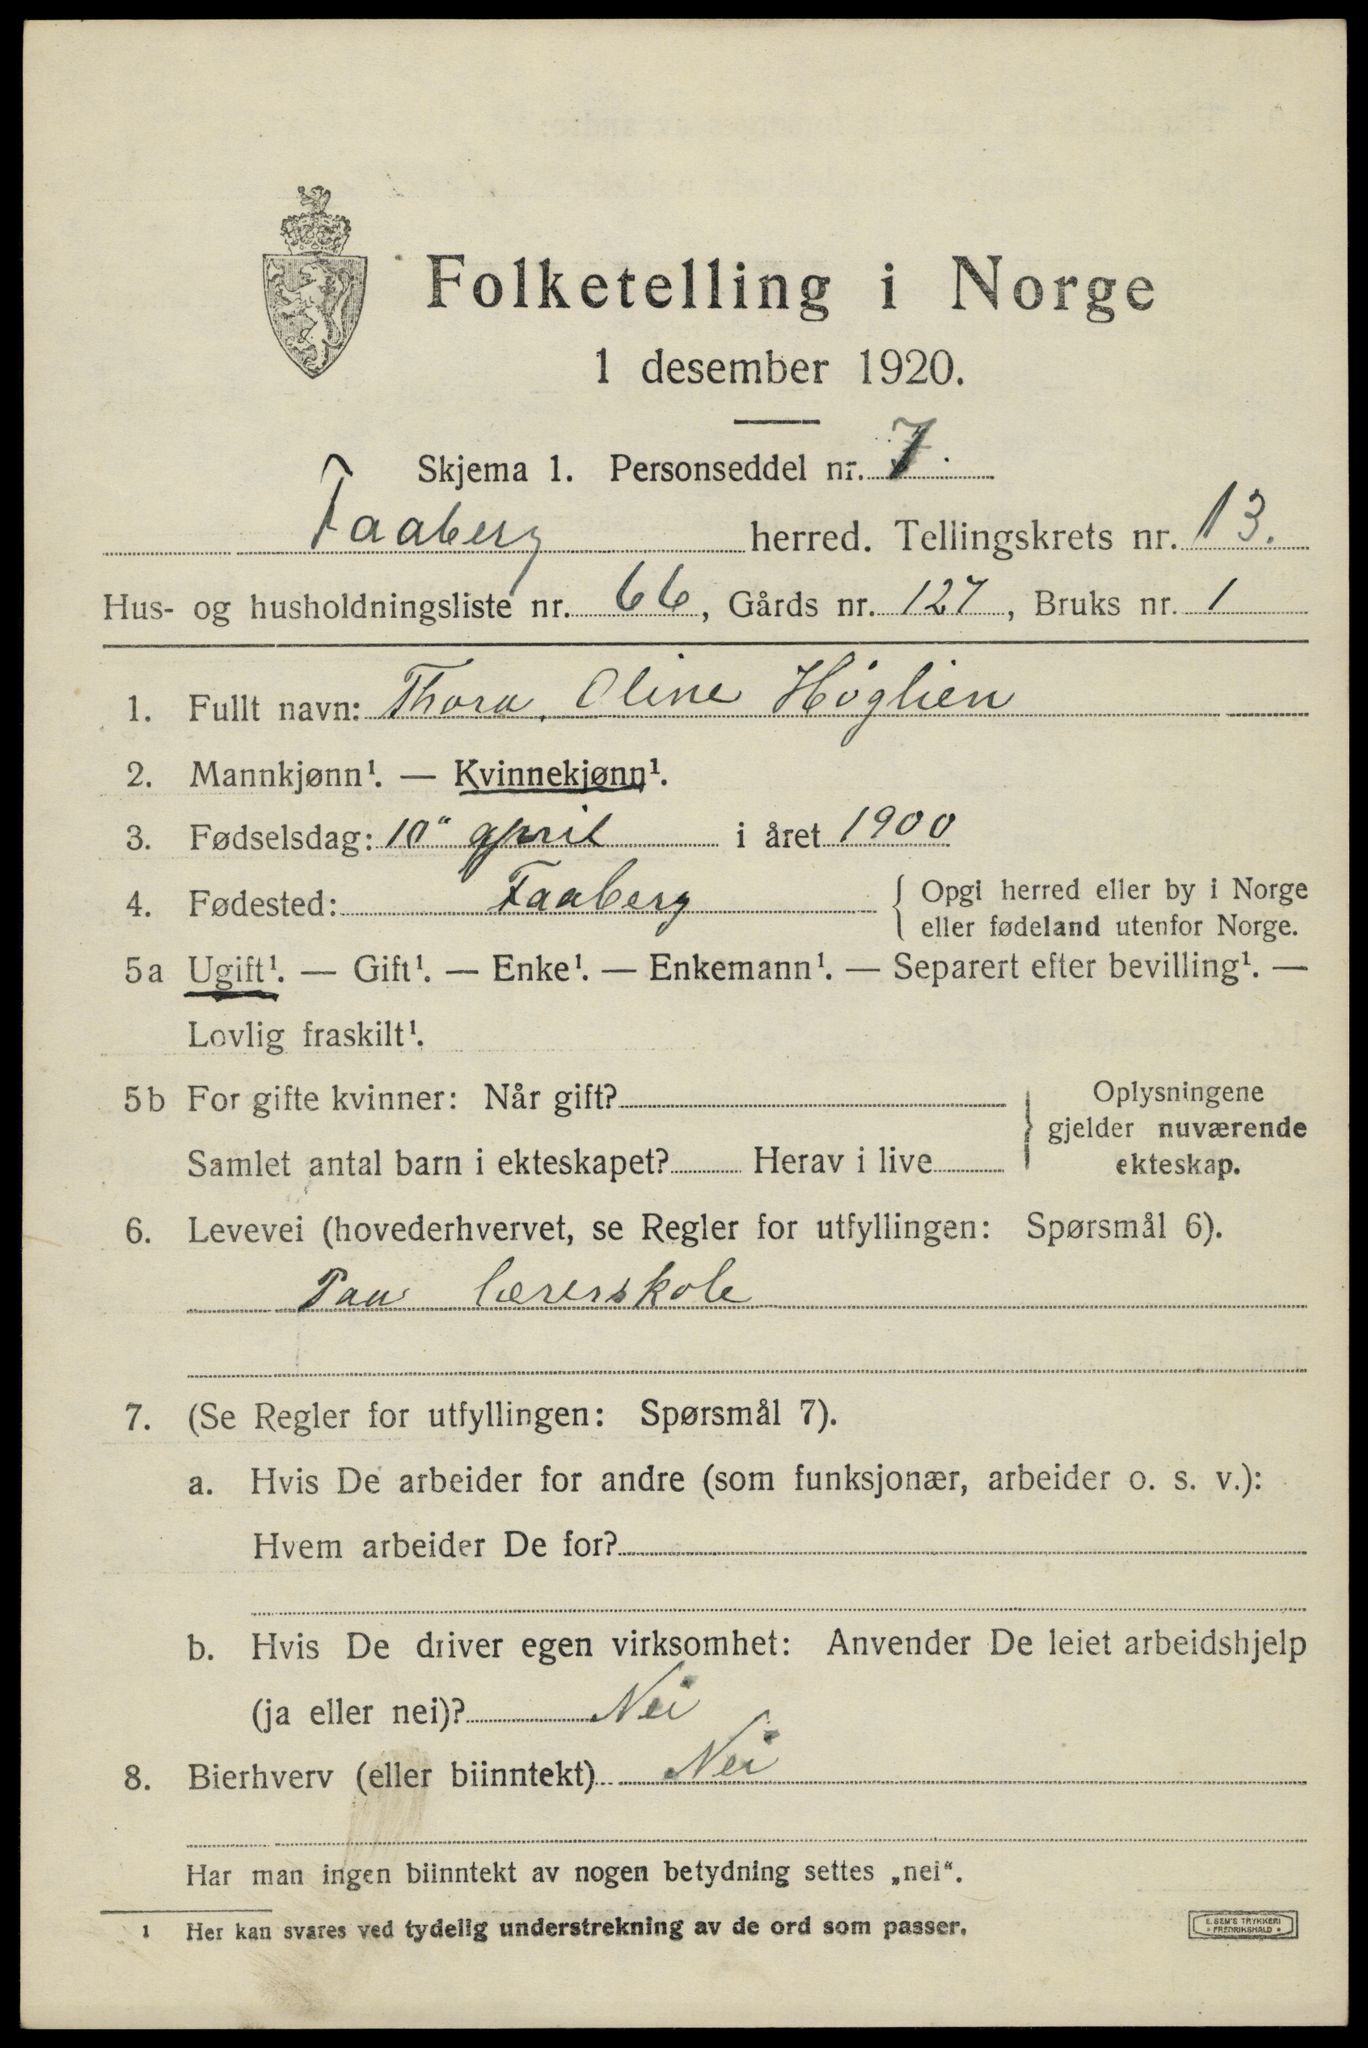 Folketelling i Norge
1 desember 1920.
Skjema 1. Personseddel nr. 7.
Faaberg herred. Tellingskrets nr. 13.
Hus- og husholdningsliste nr. 66, Gårds nr. 127, Bruks nr. 1
1. Fullt navn: Thora Oline Høglien
2. Mannkjønn¹. — Kvinnekjønn¹.
3. Fødselsdag: 10" april i året 1900
4. Fødested: Faaberg { Opgi herred eller by i Norge
eller fødeland utenfor Norge.
5a Ugift¹. — Gift¹. — Enke¹. — Enkemann¹. — Separert efter bevilling¹. —
Lovlig fraskilt¹.
5b For gifte kvinner: Når gift? } Oplysningene
gjelder nuværende
Samlet antal barn i ekteskapet? Herav i live ekteskap.
6. Levevei (hovederhvervet, se Regler for utfyllingen: Spørsmål 6).
Paa lærerskole
7. (Se Regler for utfyllingen: Spørsmål 7).
a. Hvis De arbeider for andre (som funksjonær, arbeider o. s. v.):
Hvem arbeider De for?
b. Hvis De driver egen virksomhet: Anvender De leiet arbeidshjelp
(ja eller nei)? Nei
8. Bierhverv (eller biinntekt) Nei
Har man ingen biinntekt av nogen betydning settes „nei“.
1 Her kan svares ved tydelig understrekning av de ord som passer.
E. SEM'S TRYKKERI
• FREDRIKSHALD •